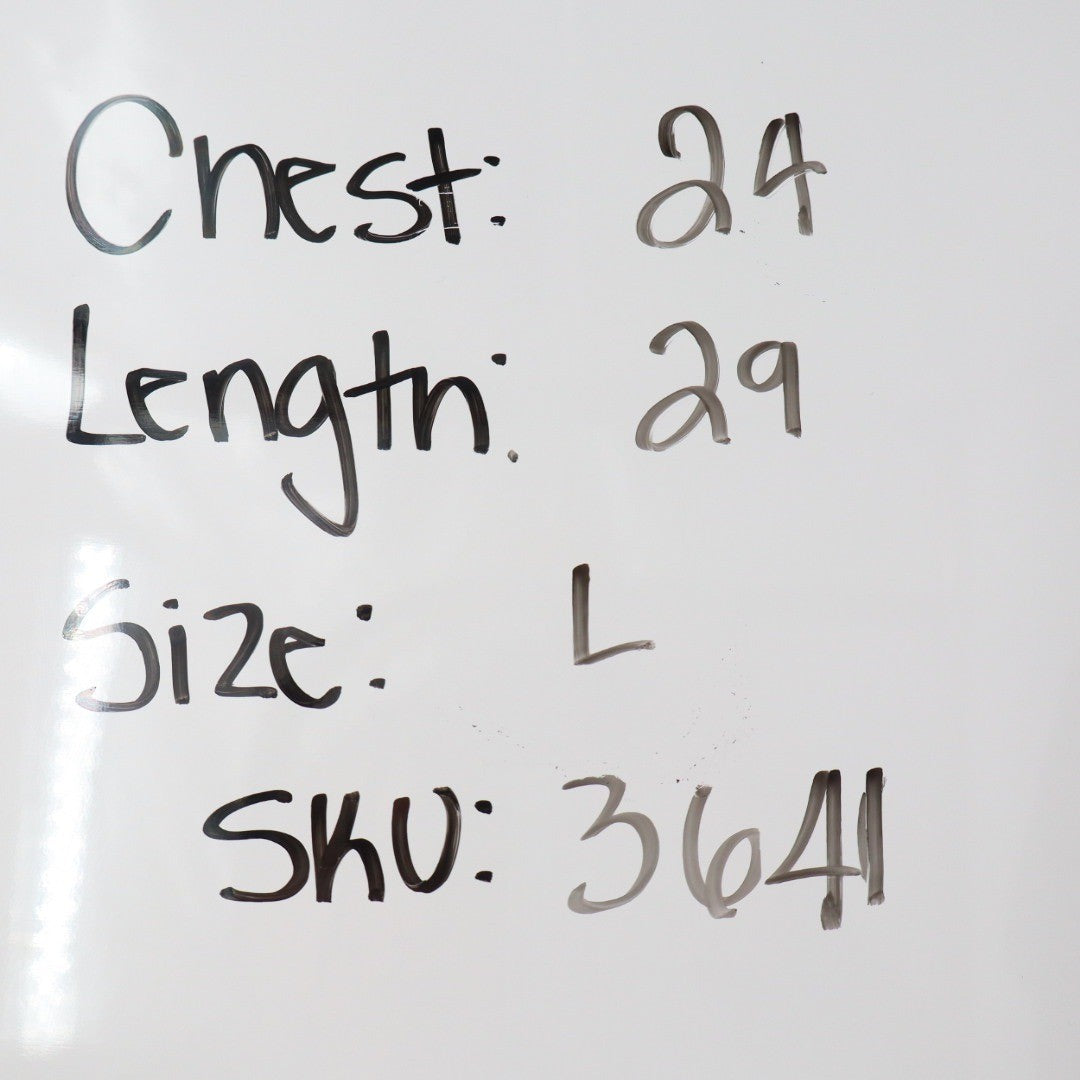 Chest: 24
Length: 29
Size: L
SKU: 3641